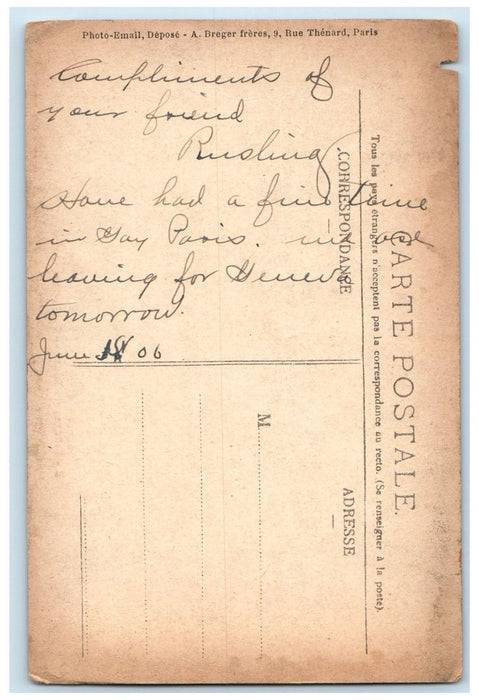 Photo-Email, Déposé - A. Breger frères, 9, Rue Thénard, Paris
Compliments of
your friend
Rusling
Have had a fine time
in Gay Paris. are
leaving for Geneva
tomorrow.
June 06
CARTE POSTALE.
Tous les pays étrangers n'acceptent pas la correspondance au recto. (Se renseigner à la poste).
CORRESPONDANCE
ADRESSE
M